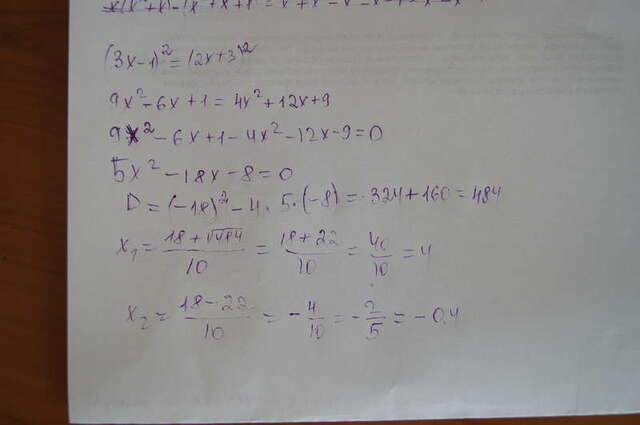 (3x-1)² = (2x+3)²
9x² - 6x + 1 = 4x² + 12x + 9
9x² - 6x + 1 - 4x² - 12x - 9 = 0
5x² - 18x - 8 = 0
D = (-18)² - 4 · 5 · (-8) = 324 + 160 = 484
x₁ = (18 + √484)/10 = (18 + 22)/10 = 40/10 = 4
x₂ = (18 - 22)/10 = -4/10 = -2/5 = -0.4